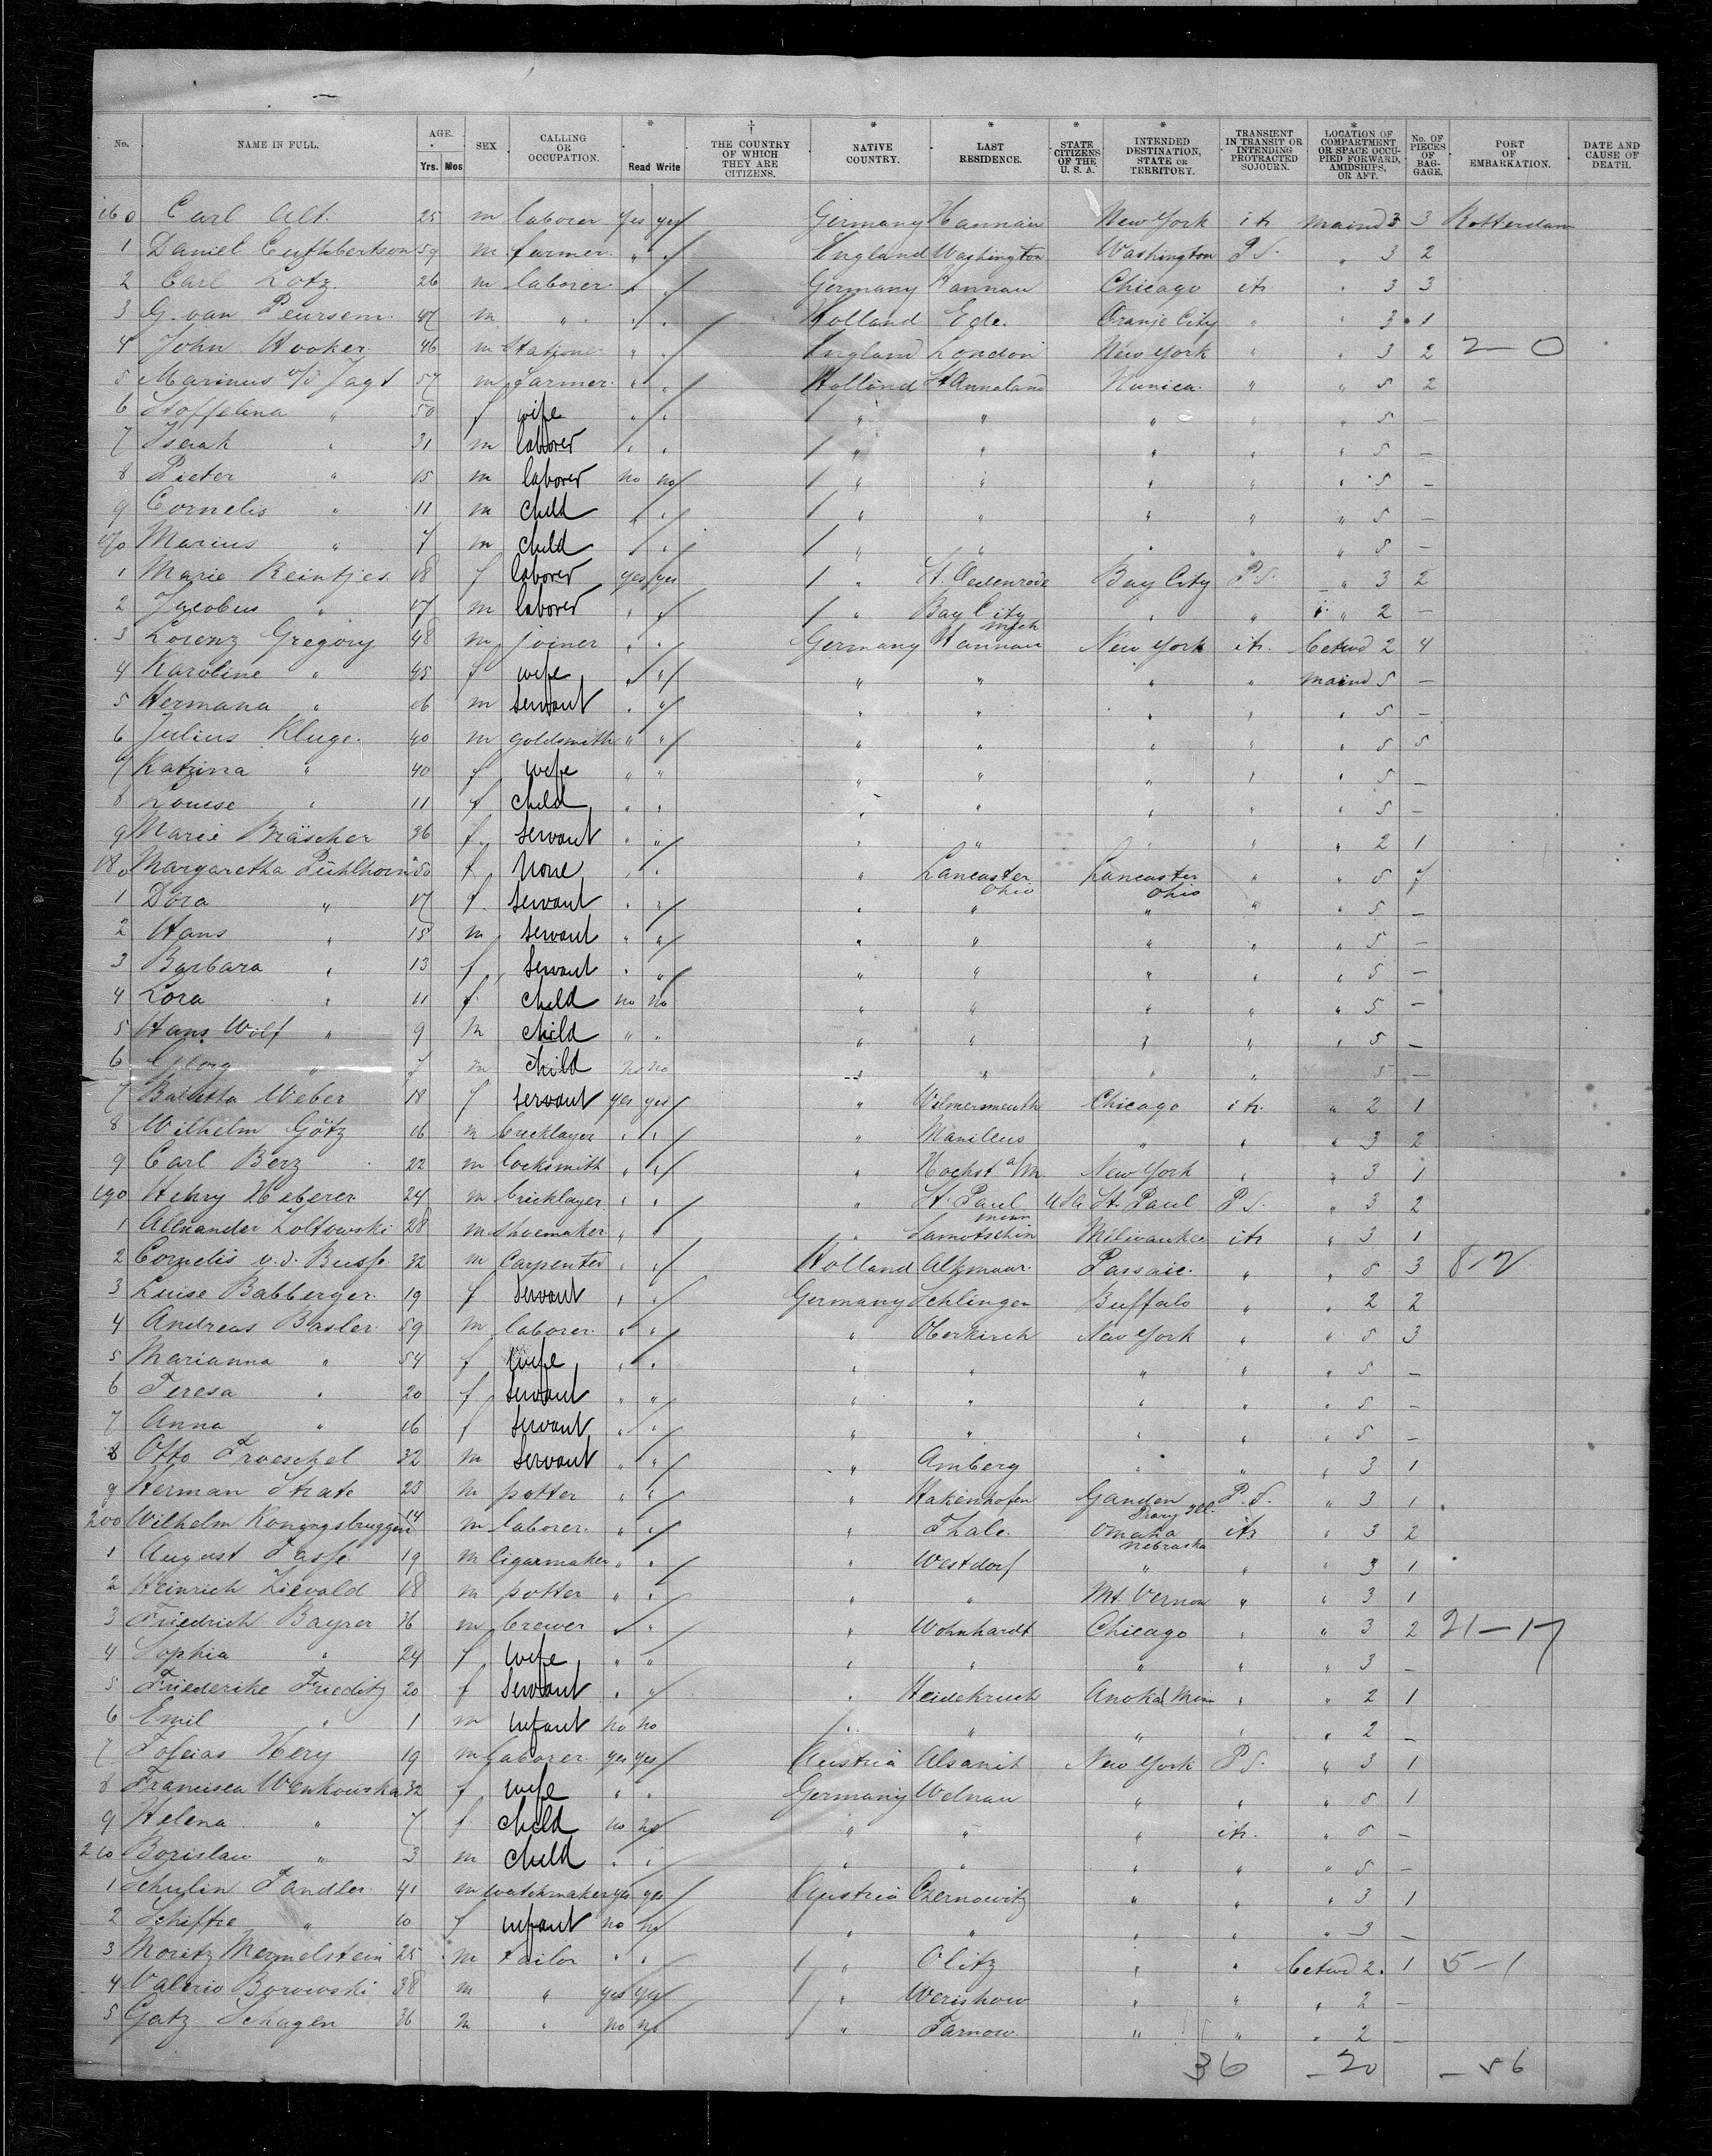 No. NAME IN FULL. AGE. Yrs. Mos SEX CALLING OR OCCUPATION. * Read Write † THE COUNTRY OF WHICH THEY ARE CITIZENS. * NATIVE COUNTRY. * LAST RESIDENCE. * STATE CITIZENS OF THE U. S. A. * INTENDED DESTINATION, STATE OR TERRITORY. TRANSIENT IN TRANSIT OR INTENDING PROTRACTED SOJOURN. * LOCATION OF COMPARTMENT OR SPACE OCCUPIED FORWARD, AMIDSHIPS, OR AFT. No. OF PIECES OF BAGGAGE. PORT OF EMBARKATION. DATE AND CAUSE OF DEATH.
160 Carl Alt. 25 m laborer yes yes Germany Hannau New York itr maind 3 3 Rotterdam
1 Daniel Cuthbertson 59 m farmer " " England Washington Washington P.S. " 3 2
2 Carl Lotz. 26 m laborer " " Germany Hannau Chicago itr " 3 3
3 G. van Peursem 47 m " " " Holland Ede. Oranje City " " 3 1
4 John Hooker 46 m " " England London New York " " 3 2 2-0
5 Marinus v/d Jagt 57 m farmer " " Holland St Annaland Nunica " " 5 2
6 Stoffelina " 50 f wife " " " " " " " 5 —
7 Iserak " 31 m laborer " " " " " " " 5 —
8 Pieter " 15 m laborer no no " " " " " 5 —
9 Cornelis " 11 m child " " " " " " " 5 —
170 Marius " 7 m child " " " " " " " 5 —
1 Marie Reintjes 18 f laborer yes yes " St. Oedenrode Bay City P.S. " 3 2
2 Jacobus " 17 m laborer " " " Bay City Mich " " " 2 —
3 Lorenz Gregory 48 m joiner " " Germany Hannau New York itr. betwd 2 4
4 Karoline " 45 f wife " " " " " " maind 5 —
5 Hermana " 16 m servant " " " " " " " 5 —
6 Julius Kluge. 40 m goldsmith " " " " " " " 5 5
7 Katrina " 40 f wife " " " " " " " 5 —
8 Louise " 11 f child " " " " " " " 5 —
9 Marie Bräscher 36 f servant " " " " " " " 2 1
180 Margaretha Pühlhorn 50 f none " " " Lancaster Ohio Lancaster Ohio " " 5 7
1 Dora " 17 f servant " " " " " " " 5 —
2 Hans " 15 m servant " " " " " " " 5 —
3 Barbara " 13 f servant " " " " " " " 5 —
4 Lora " 11 f child no no " " " " " 5 —
5 Hans Wolf " 9 m child " " " " " " " 5 —
6 Georg " 7 m child no no " " " " 5 —
7 Weber 18 f servant yes yes " Chicago itr. " 2 1
8 Wilhelm Götz 16 m bricklayer " " " " " " 3 2
9 Carl Berz 22 m locksmith " " " Hochst a/m New York " " 3 1
190 Henry Heberer 24 m bricklayer " " " St. Paul minn USA St. Paul P.S. " 3 2
1 Alexander Zoltowski 28 m shoemaker " " " Samotschin Milwaukee itr " 3 1
2 Cornelis v. d. Busse 32 m carpenter " " Holland Alkmaar Passaic " " 5 3 8-2
3 Luise Babberger 19 f servant " " Germany Schlingen Buffalo " " 2 2
4 Andreas Basler 59 m laborer " " " Oberkirch New York " " 5 3
5 Marianna " 54 f wife " " " " " " " 5 —
6 Teresa " 20 f servant " " " " " " " 5 —
7 Anna " 16 f servant " " " " " " " 5 —
8 Otto Troeschel 32 m servant " " " Amberg " " " 3 1
9 Herman Strate 23 m potter " " " Hakenhofen P.S. " 3 1
200 Wilhelm Koningsbruggen 14 m laborer " " " Thale. Omaha Nebraska itr " 3 2
1 August Tasse 19 m cigarmaker " " " Westdorf " " " 3 1
2 Heinrich Zievald 18 m potter " " " " Mt. Vernon " " 3 1
3 Friedrich Bayrer 36 m brewer " " " Wohnhardt Chicago " " 3 2 21-17
4 Sophia " 24 f wife " " " " " " " 3 —
5 Friederike Frieditz 20 f servant " " " Heidekruch Anoka Minn " " 2 1
6 Emil " 1 m infant no no " " " " " 2 —
7 Tobias Hery 19 m laborer yes yes Austria Alsanit New York P.S. " 3 1
8 Francisca Wenkowska 32 f wife " " Germany Welnau " " " 5 1
9 Helena " 7 f child no no " " " itr. " 5 —
210 Borislaw " 3 m child " " " " " " " 5 —
1 Schulin Tandler 41 m watchmaker yes yes Austria Czernowitz " " " 3 1
2 Schiffre " 10 f infant no no " " " " " 3 —
3 Moritz Mermelstein 25 m tailor " " " Olitz " " betwd 2 1 5-1
4 Valerio Borowski 38 m " yes yes " Werishow " " " 2 —
5 Gatz Schagen 36 m " no no " Tarnow " " " 2 —
36 — 20 — 56